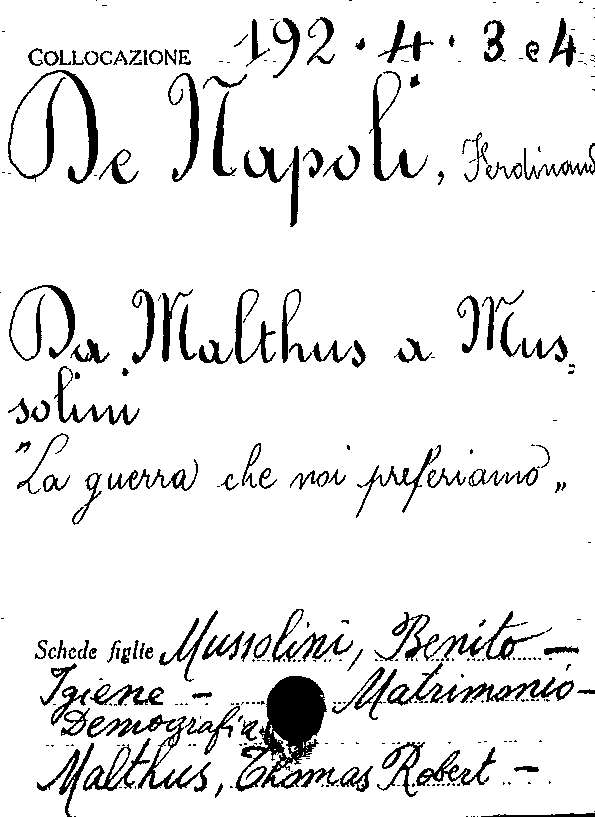 COLLOCAZIONE 192.4.3 e 4
De Napoli, Ferdinand
Da Malthus a Mus=
solini
"La guerra che noi preferiamo„
Schede figlie Mussolini, Benito —
Igiene — Matrimonio —
Demografia
Malthus, Thomas Robert —